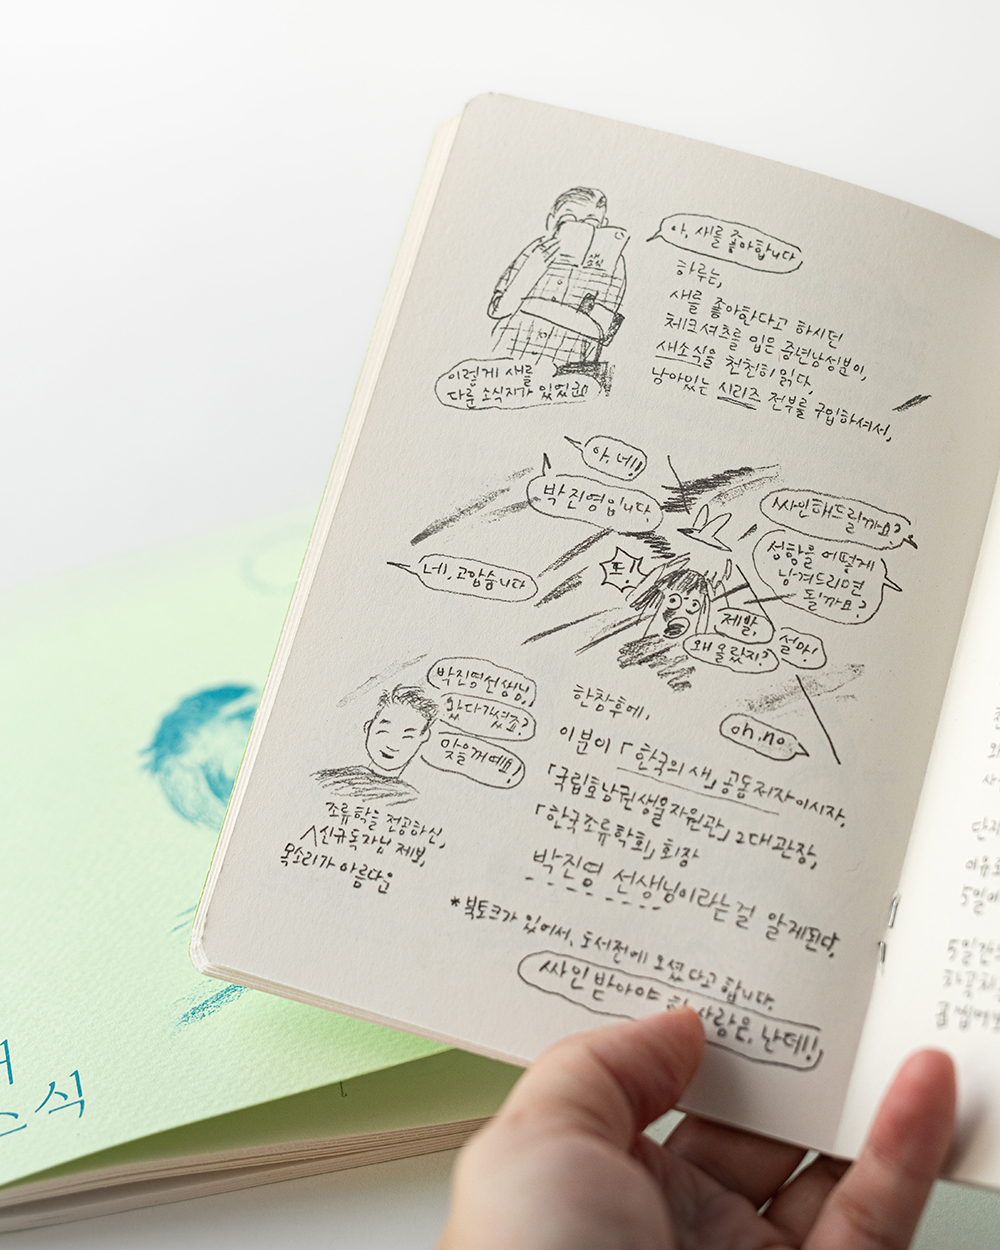 아, 새를 좋아합니다
하루는,
새를 좋아한다고 하시던
체크셔츠를 입은 중년남성분이,
새소식을 천천히 읽다,
남아있는 시리즈 전부를 구입하셔서,
새
소식
이렇게 새를
다룬 소식지가 있었군요
아, 네!!
박진영입니다.
싸인해드릴까요?
성함을 어떻게
남겨드리면
될까요?
네, 고맙습니다
헉!
제발,
왜 올랐지?
설마!
oh, no.
박진영선생님,
왔다가셨죠?
맞을꺼예요!
조류학을 전공하신,
신규독자님 제보,
목소리가 아름다운
한참후에,
이분이 「한국의 새」 공동저자이시자,
「국립호남권생물자원관」 2대 관장,
「한국조류학회」 회장
박진영 선생님이라는걸 알게된다.
*북토크가 있어서, 도서전에 오셨다고 합니다.
싸인받아야 할 사람은, 난데!!
소식
단지
5일이
5일간의